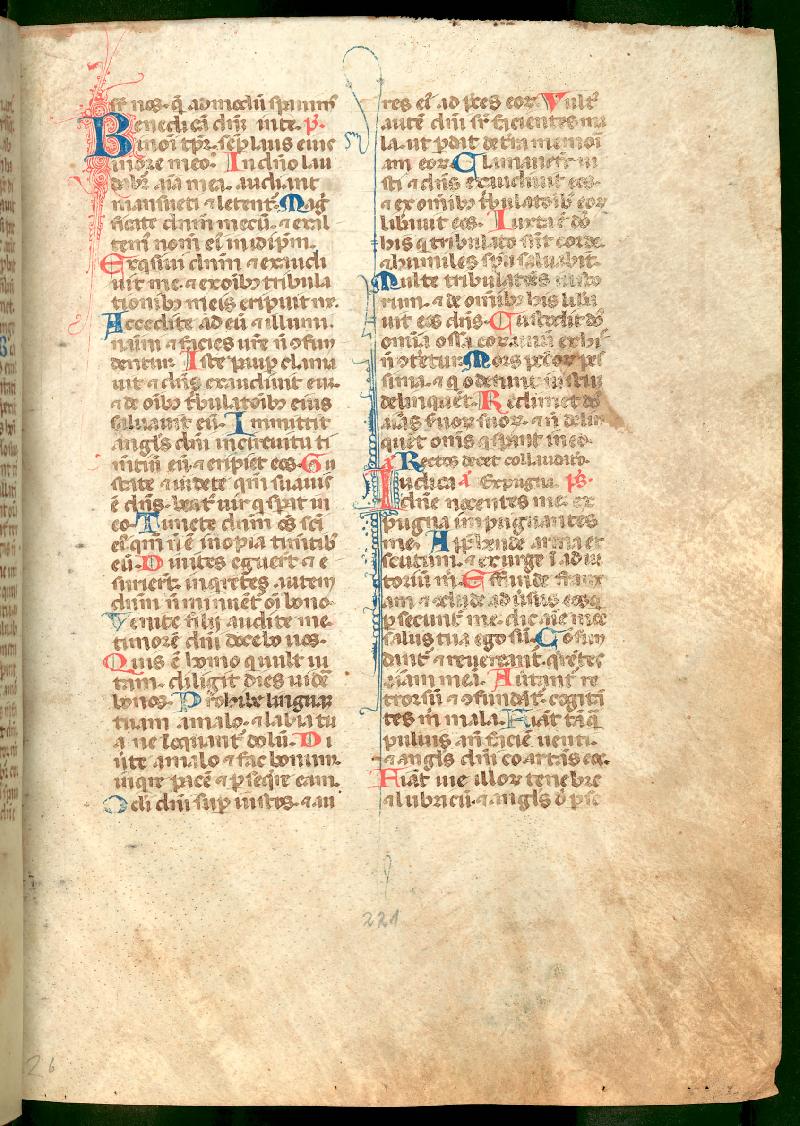 sr̄ nos. q̄ admodū spauim᷒
Benedicā dn̄m inte. p̄.
in oī tp̄r. sēp laus eius
inore meo. In dn̄o lau
dabit᷒ aīa mea. audiant
mansueti ⁊ letent᷒. Mag
ficate dn̄m mecū. ⁊ exal
tem᷒ nom̄ ei᷒ inidip̄m.
Exqsiui dn̄m ⁊ exaudi
uit me. ⁊ ex oībꝫ tribula
tionibꝫ meis eripuit me.
Accedite ad eū ⁊ illumi
namī ⁊ facies ur̄e n̄ ꝯfun
dentur. Iste paup clama
uit ⁊ dn̄s exaudiuit eum
⁊ de oībꝫ tbulatōibꝫ eius
saluauit eū. Immittit
angl̄s dn̄i incircuitu ti
mētiū eū. ⁊ eripiet eos. Gu
state ⁊ uidete qm̄ suauis
ē dn̄s. beat᷒ uir q spat in
eo. Timete dn̄m oēs sc̄i
ei᷒ qm̄ n̄ ē inopia timētibꝫ
eū. Diuites eguer̄t ⁊ e
surier̄t. inqrētes autem
dn̄m n̄ minuent᷒ oī bono.
Venite filij audite me.
timorē dn̄i docebo uos.
Quis ē homo q uult ui
tam. diligit dies uidē
bonos. Prohibe linguam
tuam amalo. ⁊ labia tu
a ne loquant᷒ dolū. Di
u᷒te amalo ⁊ fac bonum.
inqre pacē ⁊ ꝑseqre eam.
Ocli dn̄i suꝑ iustos. ⁊ au
res ei᷒ ad p̄ces eoꝝ. Vult᷒
autē dn̄i sr̄ facientes ma
la. ut pdat de tra memoriā
am eoꝝ. Clamauer̄t iu
sti ⁊ dn̄s exaudiuit eos.
⁊ ex omībꝫ tbulatoībꝫ eoꝝ
libauit eos. Iuxta ē dn̄s
his q tribulato sūt corde.
⁊ humiles spū saluabit.
Multe tribulatōes iusto
rum. ⁊ de omībꝫ his libā
uit eos dn̄s. Custodit dn̄s
omīa ossa eoꝝ. unū ex his
n̄ ꝯteret᷒. Mors pctōꝝ pes
sima. ⁊ q oderunt iustū
delinquēt. Redimet dn̄s
aīas suoꝝ suoꝝ. ⁊ n̄ delin
quēt om̄s q spant in eo.
a Rectos decet collaudatio.
Iudica a Expugna. ps.
dn̄e nocentes me. ex
pugna impugnantes
me. Apphende arma ⁊
scutum. ⁊ exurge ī adiu
toriū m̄. Effunde frame
am ⁊ ꝯclude aduersus eos q
ꝑsecunt᷒ me. dic aīe mee
salus tua ego sū. Cōfun
dant᷒ ⁊ reuereant᷒. qrētes
aīam meā. Auertant᷒ re
trorsū ⁊ ꝯfundāt᷒. cogitā
tes m̄ mala. Fiāt tāq
puluis añ faciē uenti.
⁊ angl̄s dn̄i coartās eos.
Fiāt uie illoꝝ tenebre
⁊ lubricū. ⁊ angl̄s dn̄i pse
221
26